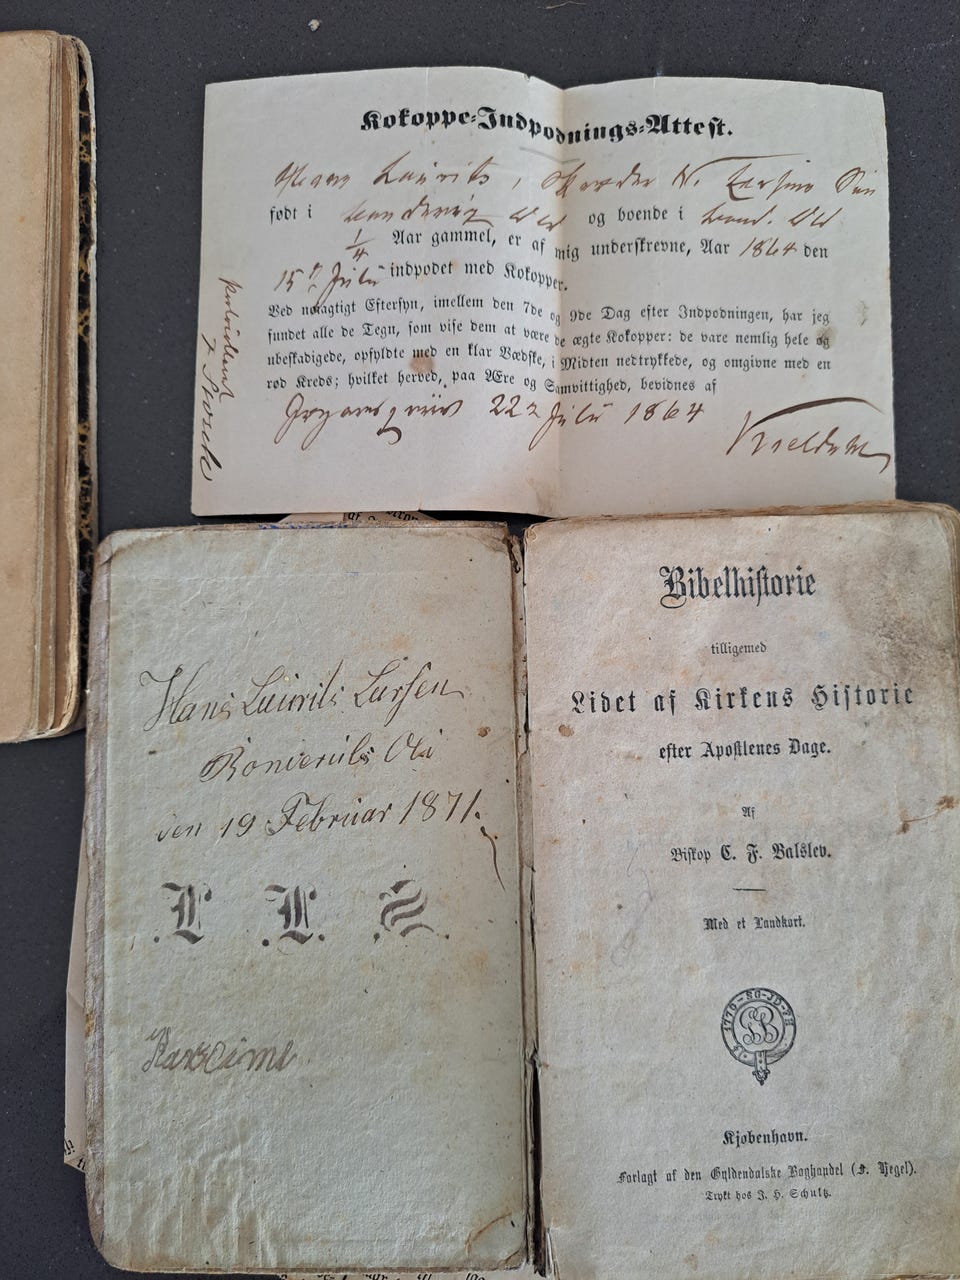 Kokoppe-Indpodnings-Attest.
Hans Laurits, N. Søn
født i og boende i
1/4 Aar gammel, er af mig underskrevne, Aar 1864 den
15 Juli indpodet med Kokopper.
Ved nøiagtigt Eftersyn, imellem den 7de og 9de Dag efter Indpodningen, har jeg
fundet alle de Tegn, som vise dem at være de ægte Kokopper: de vare nemlig hele og
ubeskadigede, opfyldte med en klar Vædske, i Midten nedtrykkede, og omgivne med en
rød Kreds; hvilket herved, paa Ære og Samvittighed, bevidnes af
22 Juli 1864
Hans Laurits Larsen
den 19 Februar 1871.
.L .L. .S.
Bibelhistorie
tilligemed
Lidet af Kirkens Historie
efter Apostlenes Dage.
Af
Biskop C. F. Balslev.
Med et Landkort.
Kjøbenhavn.
Forlagt af den Gyldendalske Boghandel (F. Hegel).
Trykt hos J. H. Schultz.